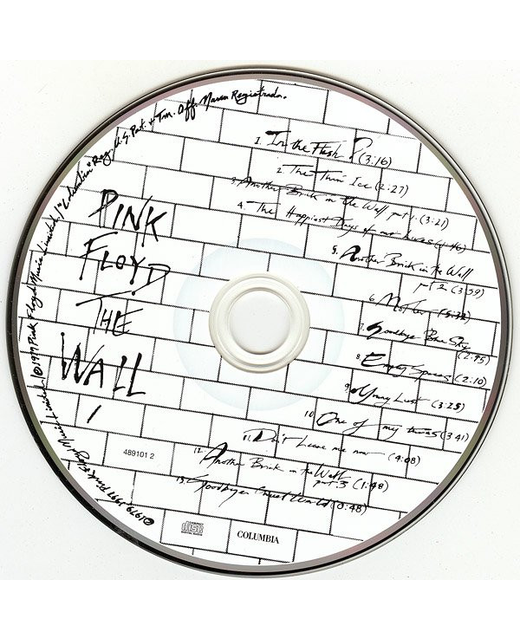 © 1979, 1997 Pink Floyd Music Limited/℗ 1979 Pink Floyd Music Limited/"Columbia" Reg. U.S. Pat. & Tm. Off. Marca Registrada.
PINK
FLOYD
THE
WALL
1
1. In the Flesh ? (3:16)
2. The Thin Ice (2:27)
3. Another Brick in the Wall part 1 (3:21)
4. The Happiest Days of our Lives (1:46)
5. Another Brick in the Wall
part 2 (3:59)
6. Mother (5:32)
7. Goodbye Blue Sky
(2:45)
8. Empty Spaces (2:10)
9. Young Lust (3:25)
10. One of my turns (3:41)
11. Don't Leave me now (4:08)
12. Another Brick in the Wall
part 3 (1:48)
13. Goodbye Cruel World (0:48)
489101 2
COLUMBIA